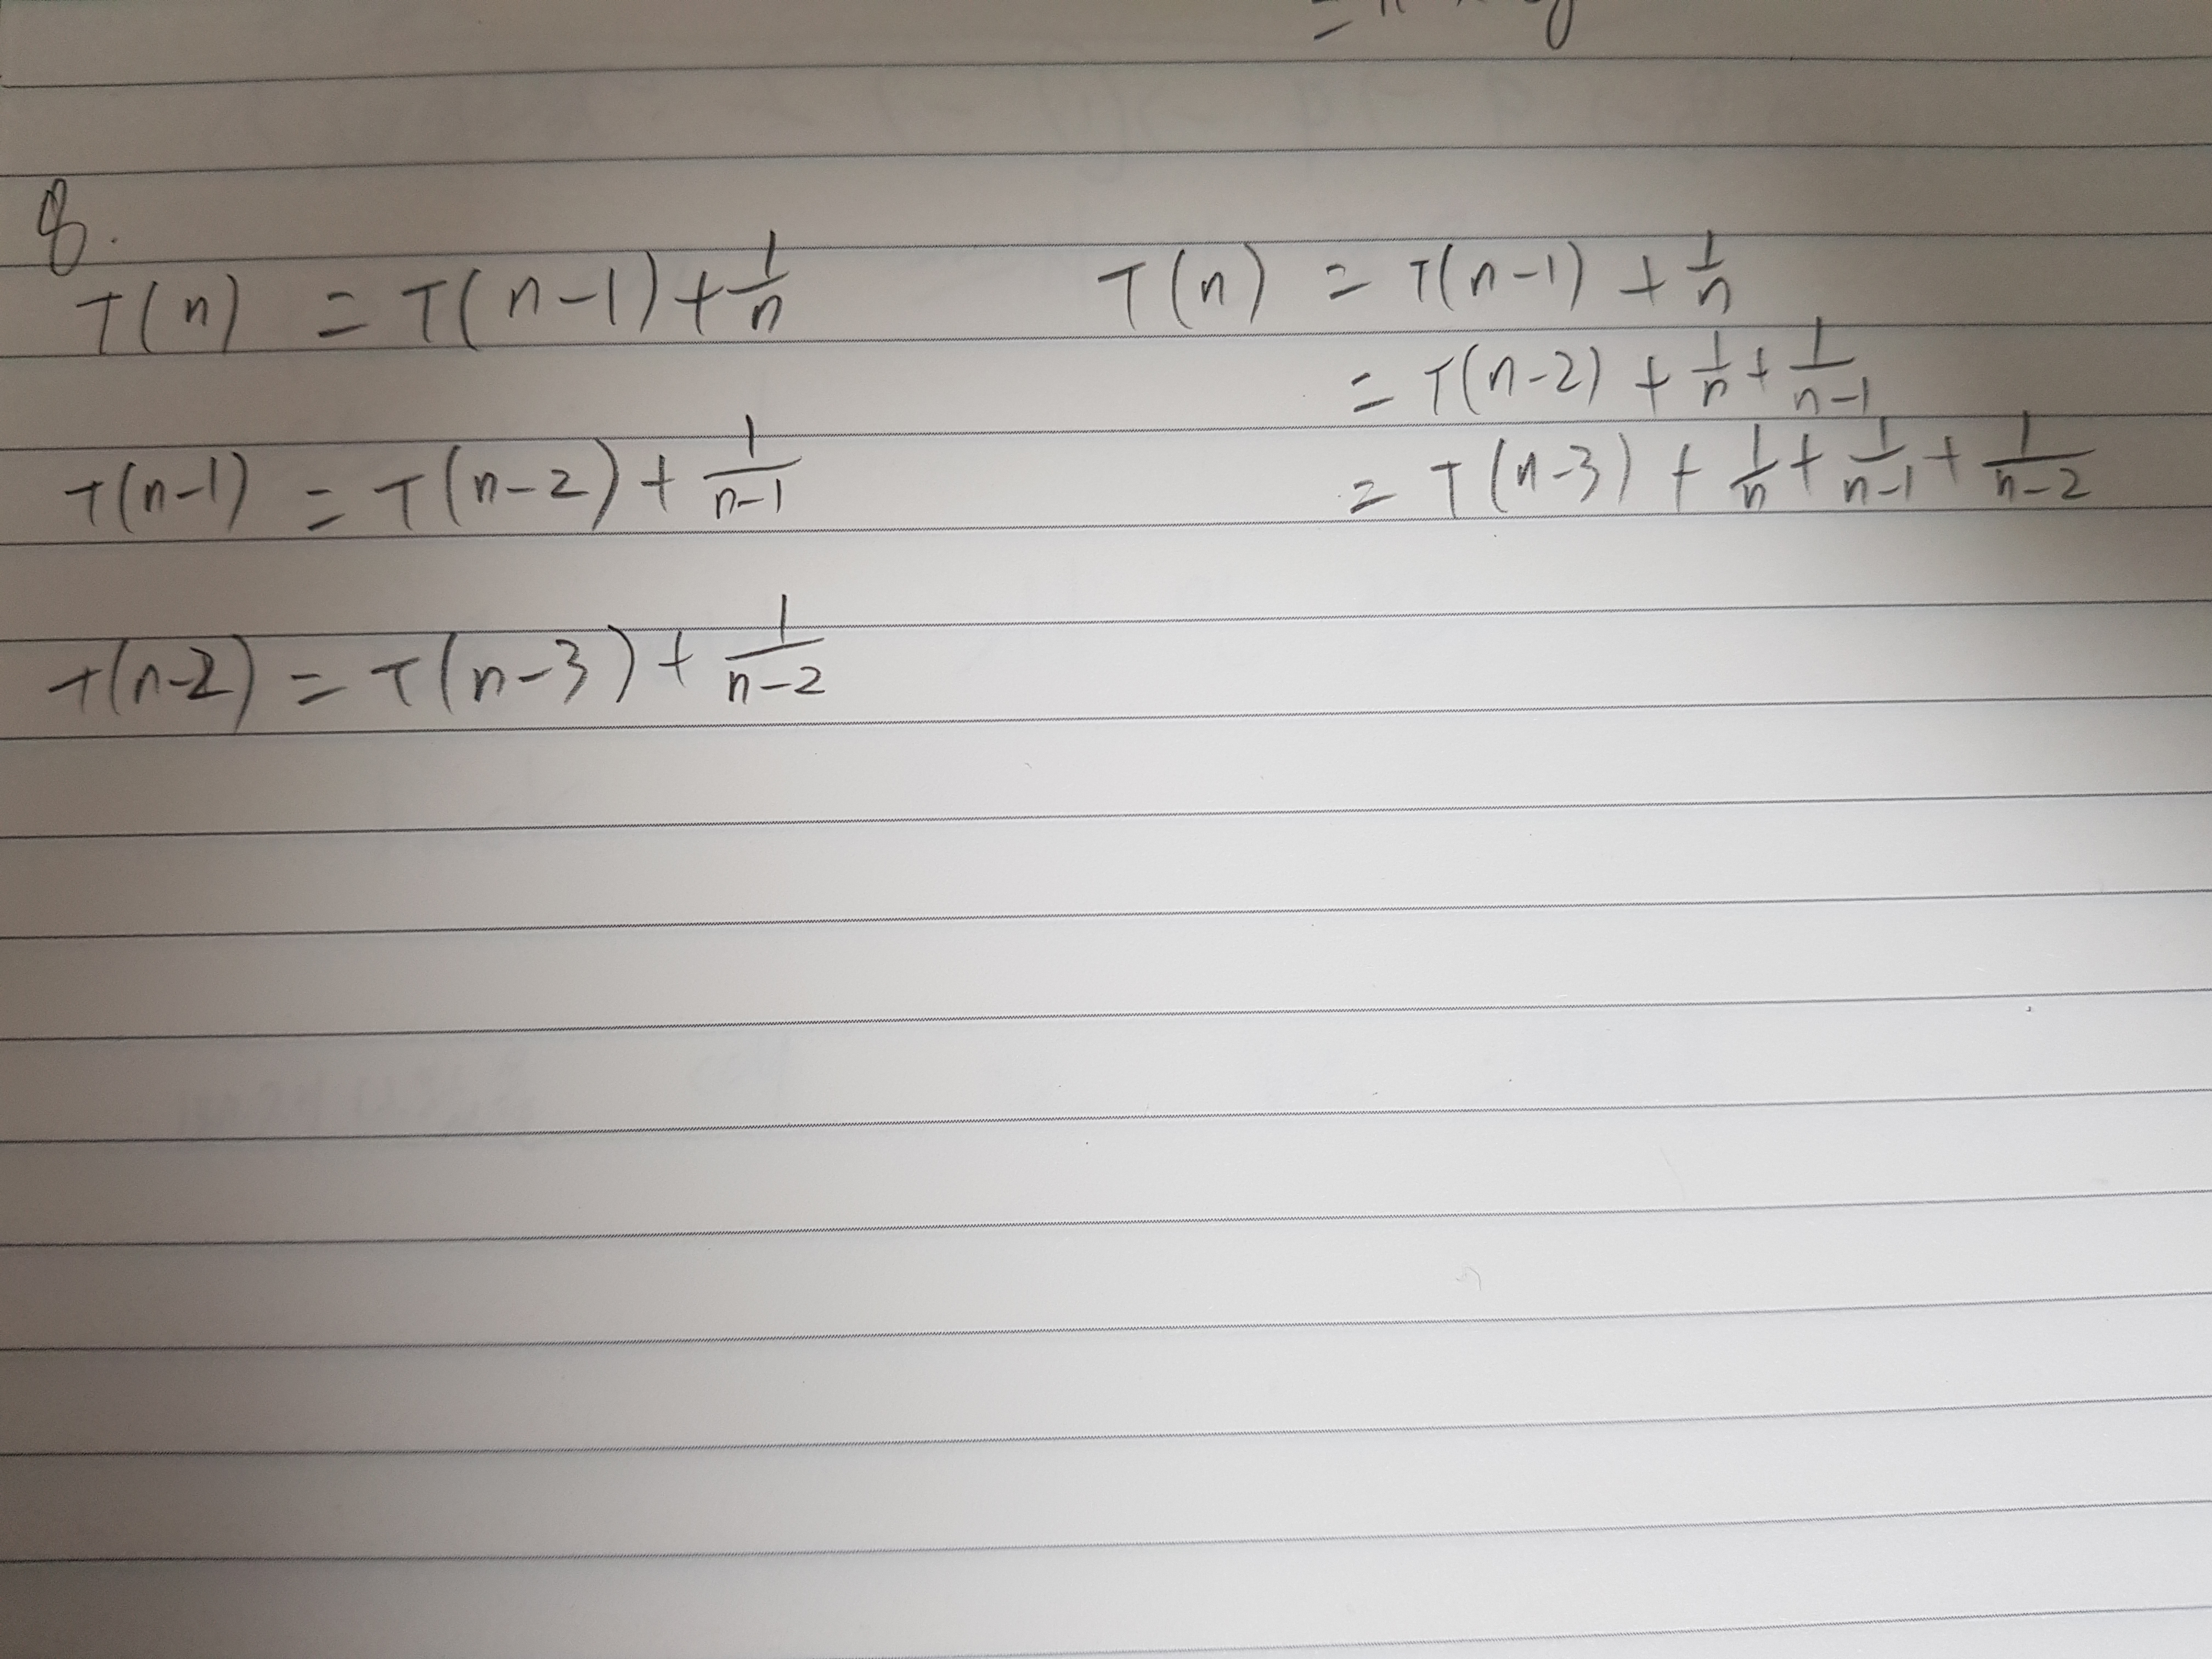 8.
T(n) = T(n-1) + 1/n
T(n-1) = T(n-2) + 1/(n-1)
T(n-2) = T(n-3) + 1/(n-2)
T(n) = T(n-1) + 1/n
= T(n-2) + 1/n + 1/(n-1)
= T(n-3) + 1/n + 1/(n-1) + 1/(n-2)